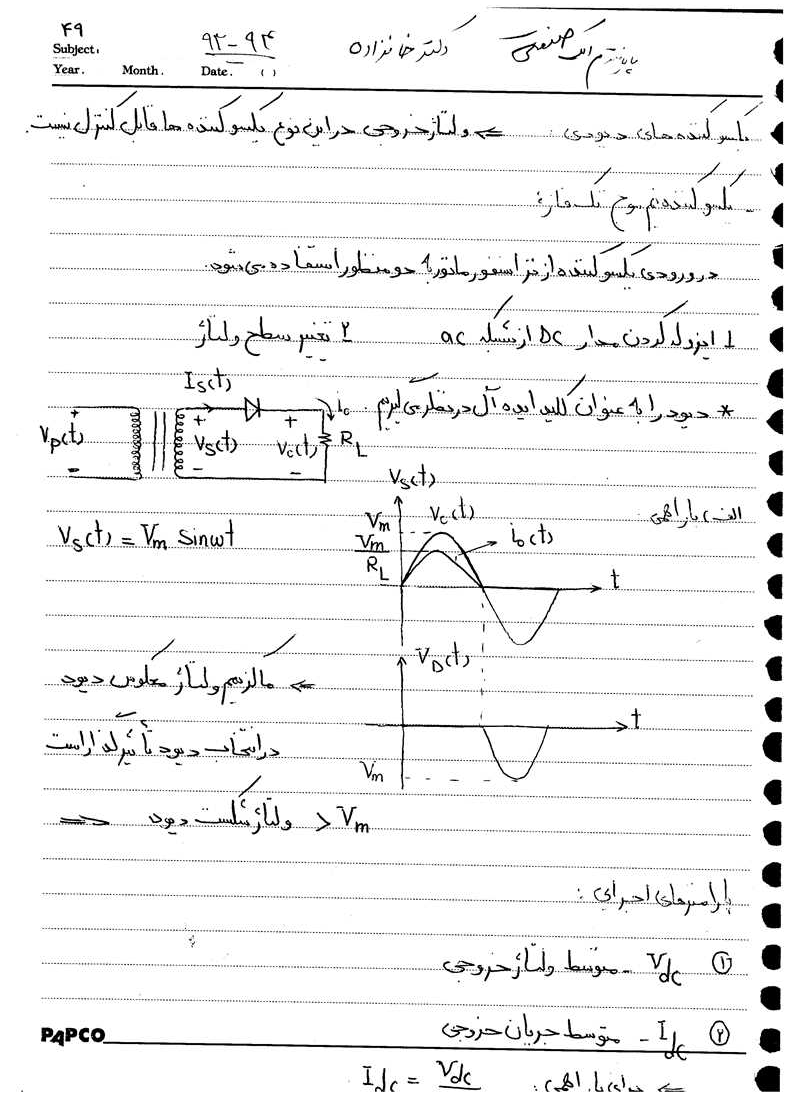 ۴۹
Subject:
Year. Month. Date. ( )
۹۳-۹۴
دکتر خانزاده
پایانترم الک صنعتی
یکسو کننده های دیودی : ⇐ ولتاژ خروجی در این نوع یکسو کننده ها قابل کنترل نیست.
- یکسو کننده نیم موج تک فاز:
در ورودی یکسو کننده از ترانسفورماتور به دو منظور استفاده می شود.
1 ایزوله کردن مدار DC از شبکه ac 2 تغییر سطح ولتاژ
* دیود را به عنوان کلید ایده آل در نظر می گیریم
Is(t)
Vp(t) + - + Vs(t) - + Vc(t) - io RL
الف) بار اهمی:
Vs(t) = Vm Sinωt
Vs(t)
Vm Vc(t)
Vm/RL io(t)
t
VD(t)
t
Vm
⇐ ماکزیمم ولتاژ معکوس دیود
در انتخاب دیود تأثیرگذار است
⇐ ولتاژ شکست دیود > Vm
پارامترهای اجرای :
① Vdc - متوسط ولتاژ خروجی
② Idc - متوسط جریان خروجی
PAPCO
⇐ برای بار اهمی: Idc = Vdc